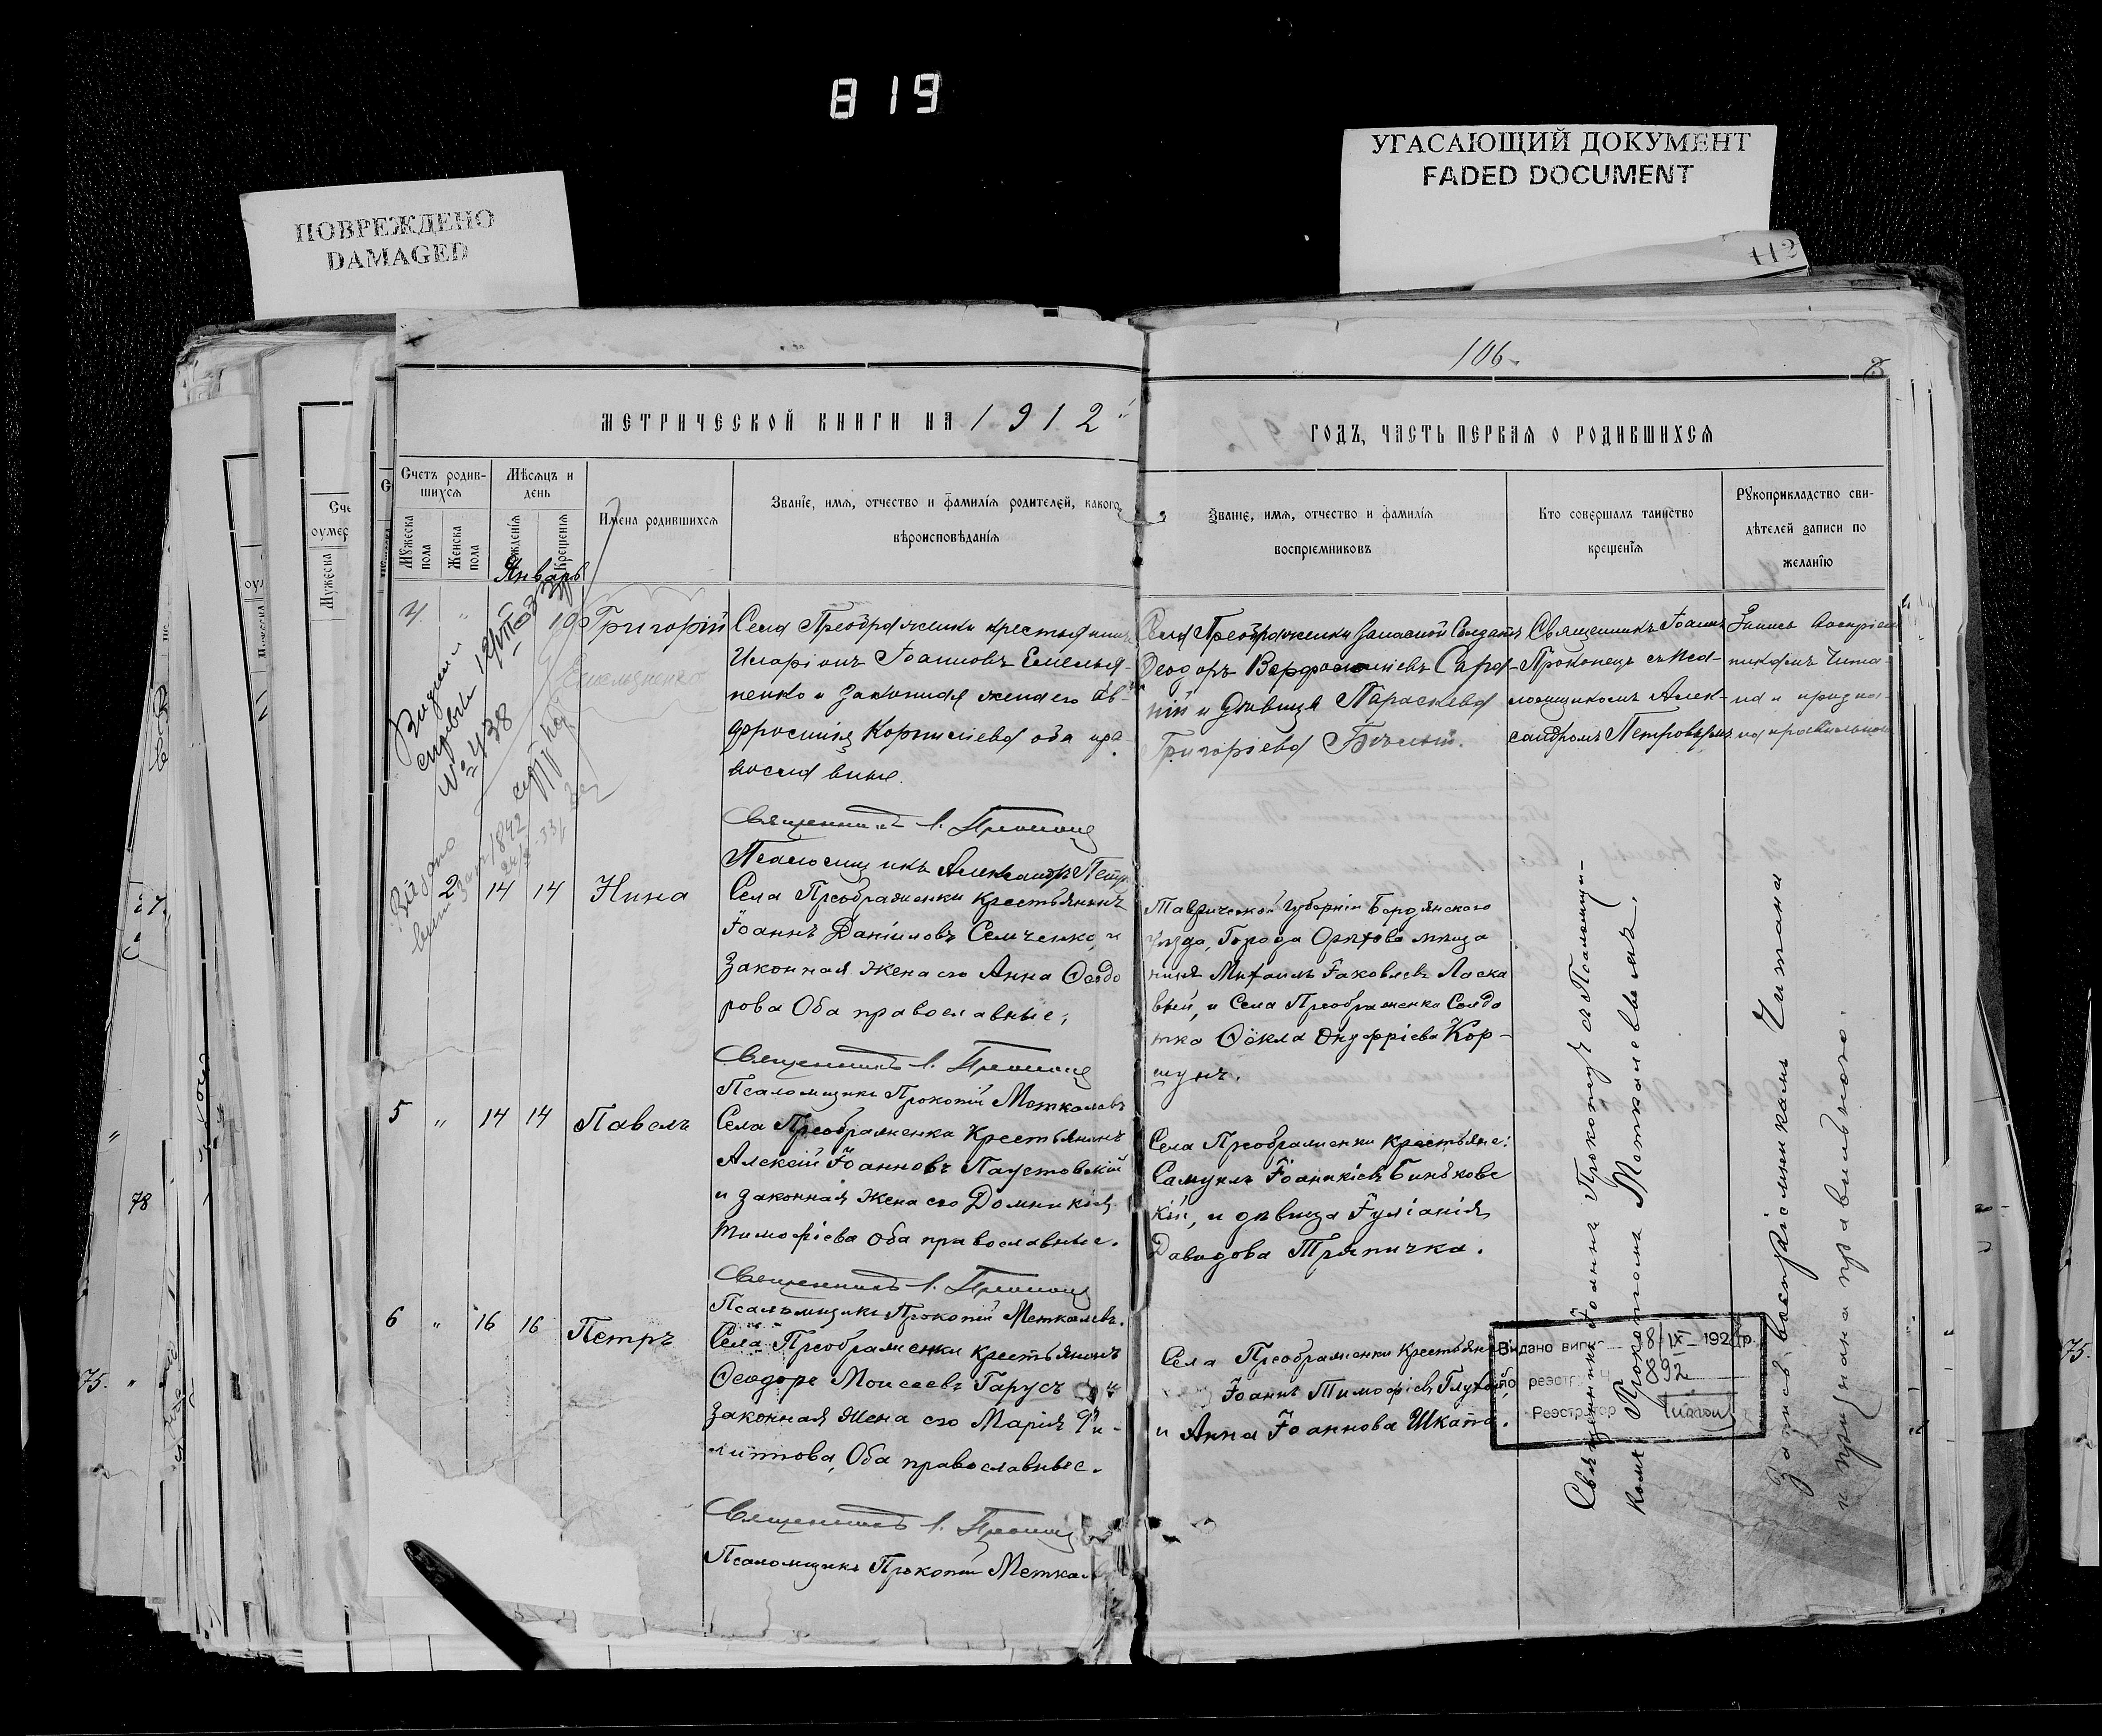 819
ПОВРЕЖДЕНО
DAMAGED
УГАСАЮЩИЙ ДОКУМЕНТ
FADED DOCUMENT
112
106
МЕТРИЧЕСКОЙ КНИГИ НА 1912
ГОДЪ, ЧАСТЬ ПЕРВАЯ О РОДИВШИХСЯ
Счетъ родив-
шихся
Мѣсяцъ и
день
Мужеска
пола
Женска
пола
Рожденія
Крещенія
Имена родившихся
Званіе, имя, отчество и фамилія родителей, какого
вѣроисповѣданія
Званіе, имя, отчество и фамилія
воспріемниковъ
Кто совершалъ таинство
крещенія
Рукоприкладство сви-
дѣтелей записи по
желанію
Январь
Григорій
Емельяненко
Села Преображенки крестьянинъ
Иларіонъ Іоанновъ Емелья-
ненко и законная жена его Ев-
фросинія Корниліева оба пра-
вославные.
Священникъ І. Прокопец
Псаломщикъ Александръ Петр
Села Преображенки Запасной Солдатъ
Ѳеодоръ
и дѣвица Параскева
Григоріева
Священникъ Іоаннъ
Прокопецъ съ Пса-
ломщикомъ Алек-
сандромъ Петровымъ
Запись воспріем
никамъ чита-
на и призна-
на правильною
№ 438
1842
" 2 14 14 Нина
Села Преображенки Крестьянинъ
Іоаннъ Даніиловъ Семченко, и
Законная Жена его Анна Ѳеодо
рова Оба православные;
Священникъ І. Прокопец
Псаломщикъ Прокопій Меткалевъ
Таврической Губерніи Бердянского
уѣзда, Города Орѣхова мѣща
нинъ Михаилъ Іаковлевъ Ласка
вый, и Села Преображенки Солда
тка Ѳекла Онуфріева Кор-
шунъ.
5 " 14 14 Павелъ
Села Преображенка Крестьянинъ
Алексій Іоанновъ Паустовскій
и законная Жена его Домникія
Тимофіева Оба православные.
Священникъ І. Прокопец
Псаломщикъ Прокопій Меткалевъ.
Села Преображенки крестьяне:
Самуилъ Іоаникіевъ Биньковс
кій, и дѣвица Іуліанія
Давидова Тряпичка.
6 " 16 16 Петръ
Села Преображенки Крестьянинъ
Ѳеодоръ Моисеевъ Гарусъ и
Законная Жена его Марія Фи-
липпова, Оба православные.
Священникъ І. Прокопец
Псаломщикъ Прокопій Меткал
Села Преображенки Крестьян
Іоаннъ Тимофіевъ Глухой,
и Анна Іоаннова Шкапа.
Священникъ Іоаннъ Прокопецъ съ Псаломщи-
комъ Прокопіемъ Меткалевымъ.
Запись воспріемникамъ Читана
и признана правильною.
Видано вип 8/IX 192 р.
по реэстру Ч 892
Реэстратор
78
75.
75.